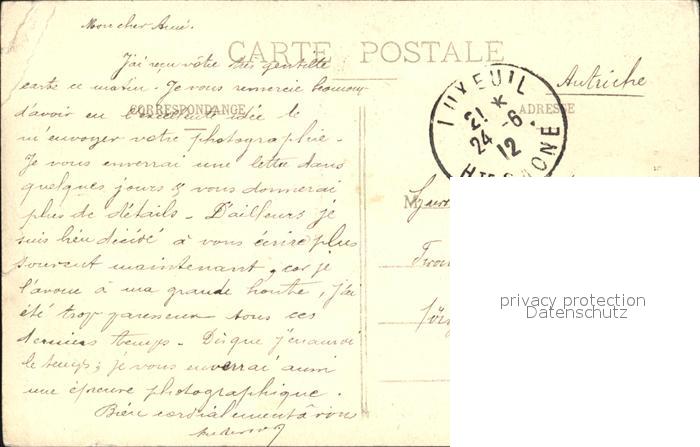 Mon cher Aimé.
J'ai reçu vôtre très gentille
CARTE POSTALE
carte ce matin. Je vous remercie beaucoup
d'avoir eu l'excellente idée de
CORRESPONDANCE
m'envoyer votre photographie.
Je vous enverrai une lettre dans
quelques jours & vous donnerai
plus de détails. D'ailleurs je
suis bien décidé à vous écrire plus
souvent maintenant, car je
l'avoue à ma grande honte, j'ai
été trop paresseux tous ces
derniers temps. Dès que j'en aurai
le temps; je vous enverrai aussi
une épreuve photographique.
Bien cordialement à vous
LUXEUIL
21 *
24 - 6
12
HTE SAONE
Autriche
ADRESSE
M
privacy protection
Datenschutz